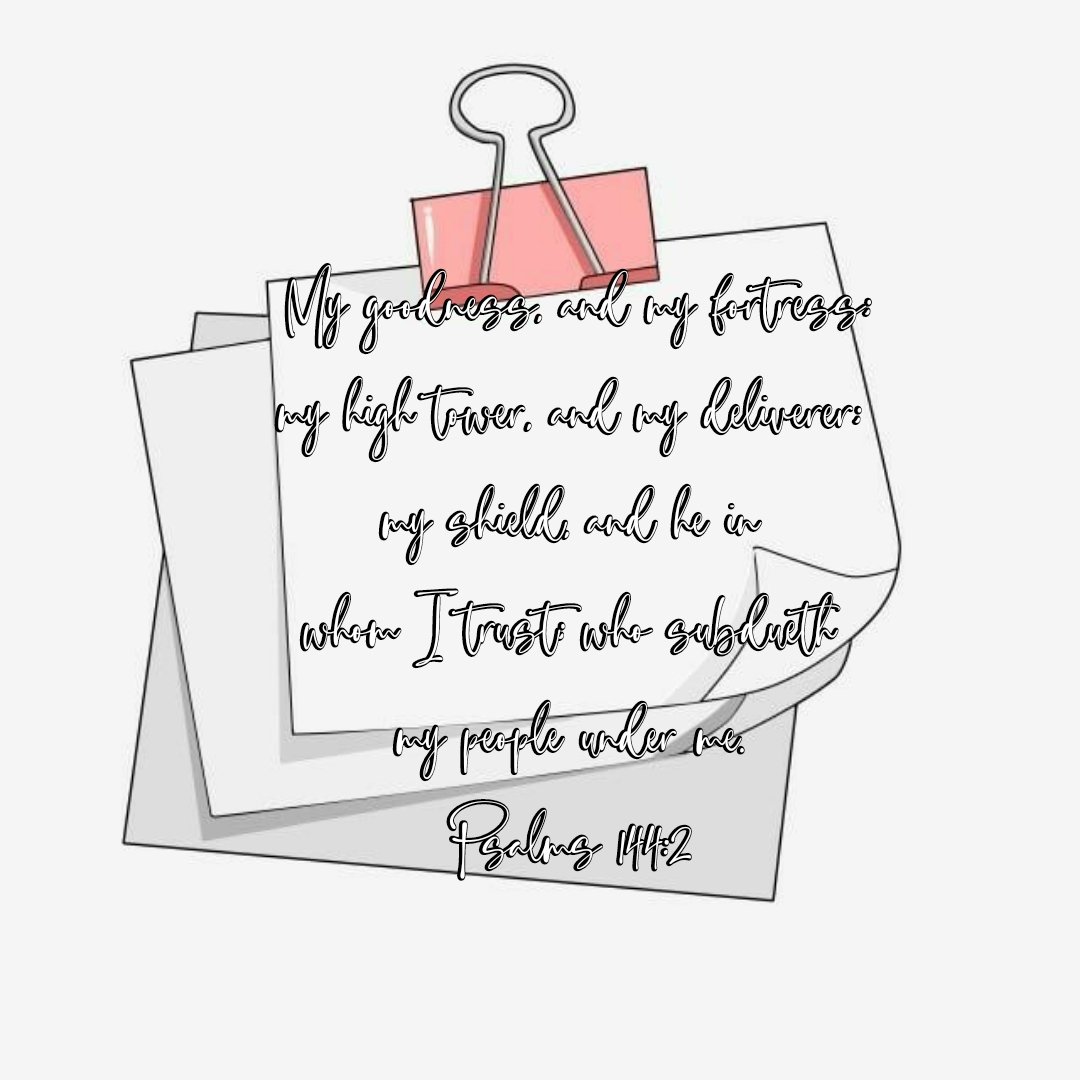 My goodness, and my fortress;
my high tower, and my deliverer;
my shield, and he in
whom I trust; who subdueth
my people under me.
Psalms 144:2